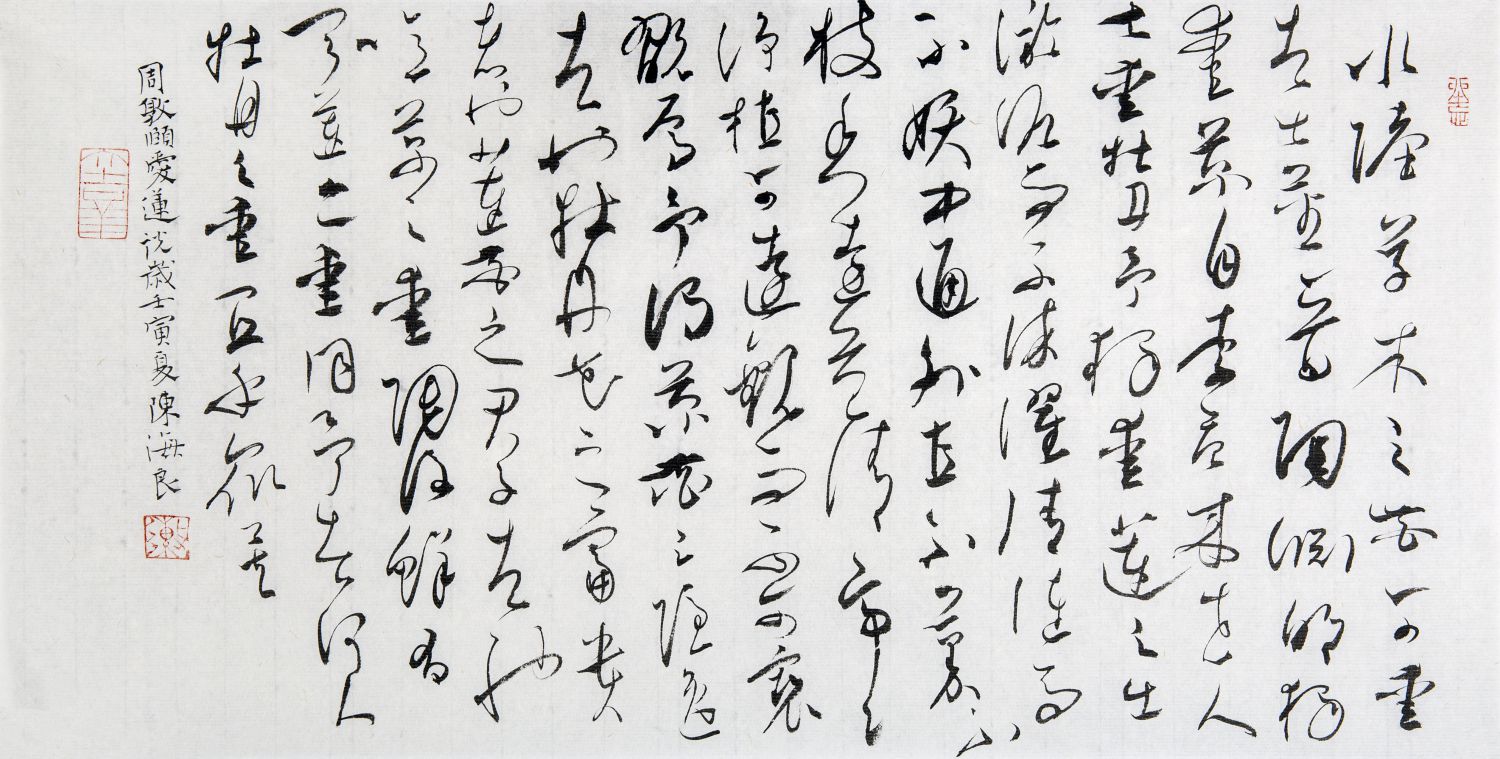 水陸草木之花可愛
者甚蕃晉陶淵明獨
愛菊自李唐來世人
甚愛牡丹予獨愛蓮之出
淤泥而不染濯清漣而
不妖中通外直不蔓不
枝香遠益清亭亭
淨植可遠觀而不可褻
翫焉予謂菊花之隱逸
者也牡丹花之富貴
者也蓮花之君子者也
噫菊之愛陶後鮮有
聞蓮之愛同予者何人
牡丹之愛宜乎衆矣
周敦頤愛蓮説歲壬寅夏陳海良